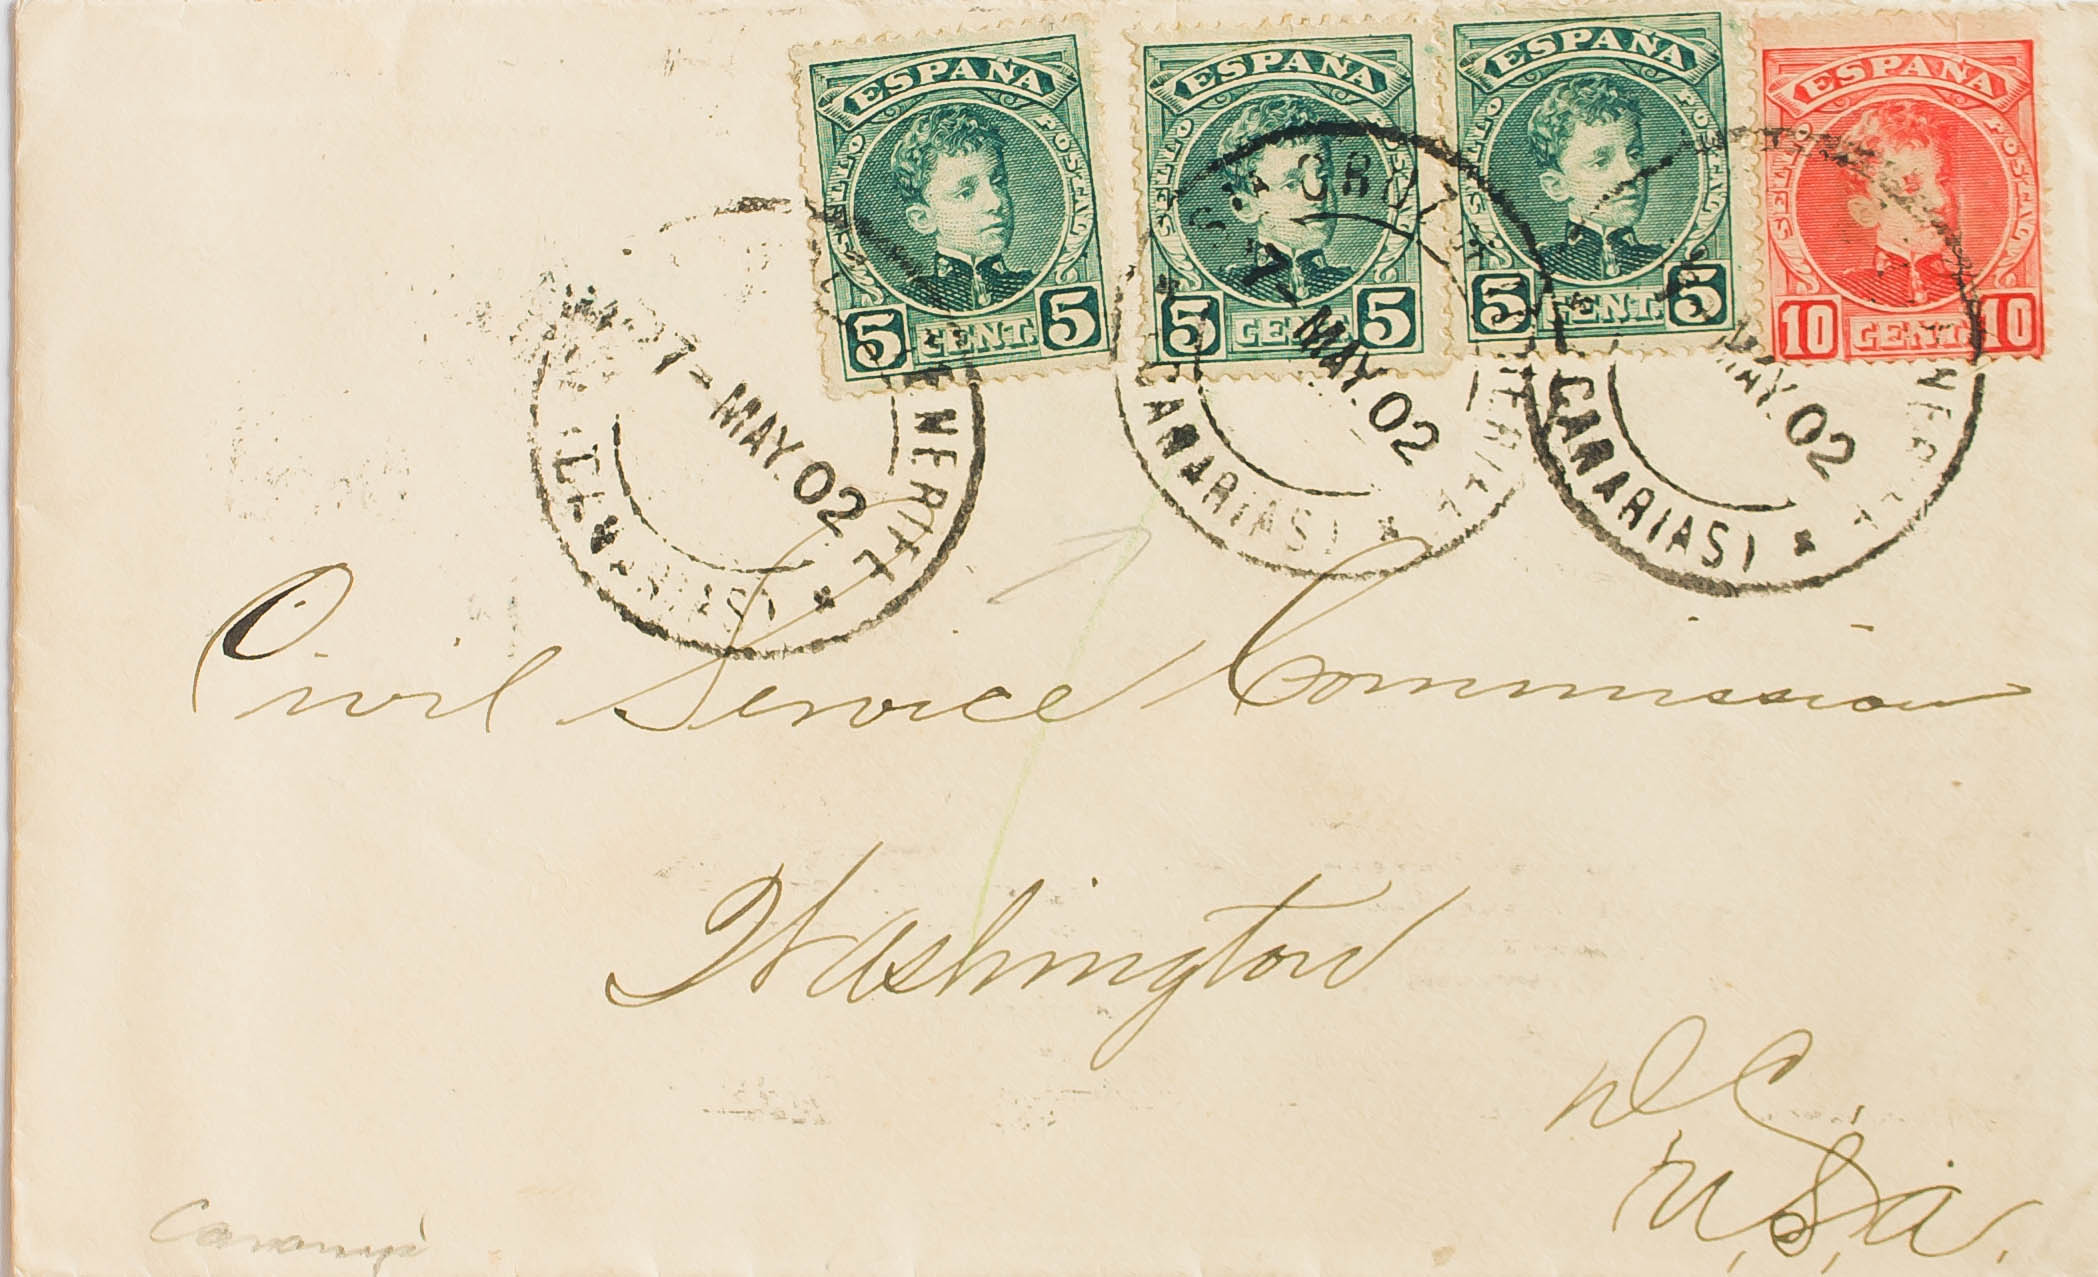 ESPAÑA ESPAÑA ESPAÑA ESPAÑA
SELLO POSTAL SELLO POSTAL SELLO POSTAL SELLO POSTAL
5 CENT. 5 5 CENT. 5 5 CENT. 5 10 CENT. 10
7-MAY.02
TENERIFE
(CANARIAS)
STA CRUZ DE TENERIFE
7-MAY.02
(CANARIAS)
MAY.02
TENERIFE
(CANARIAS)
Civil Service Commission
Washington
D C,
U.S.A.